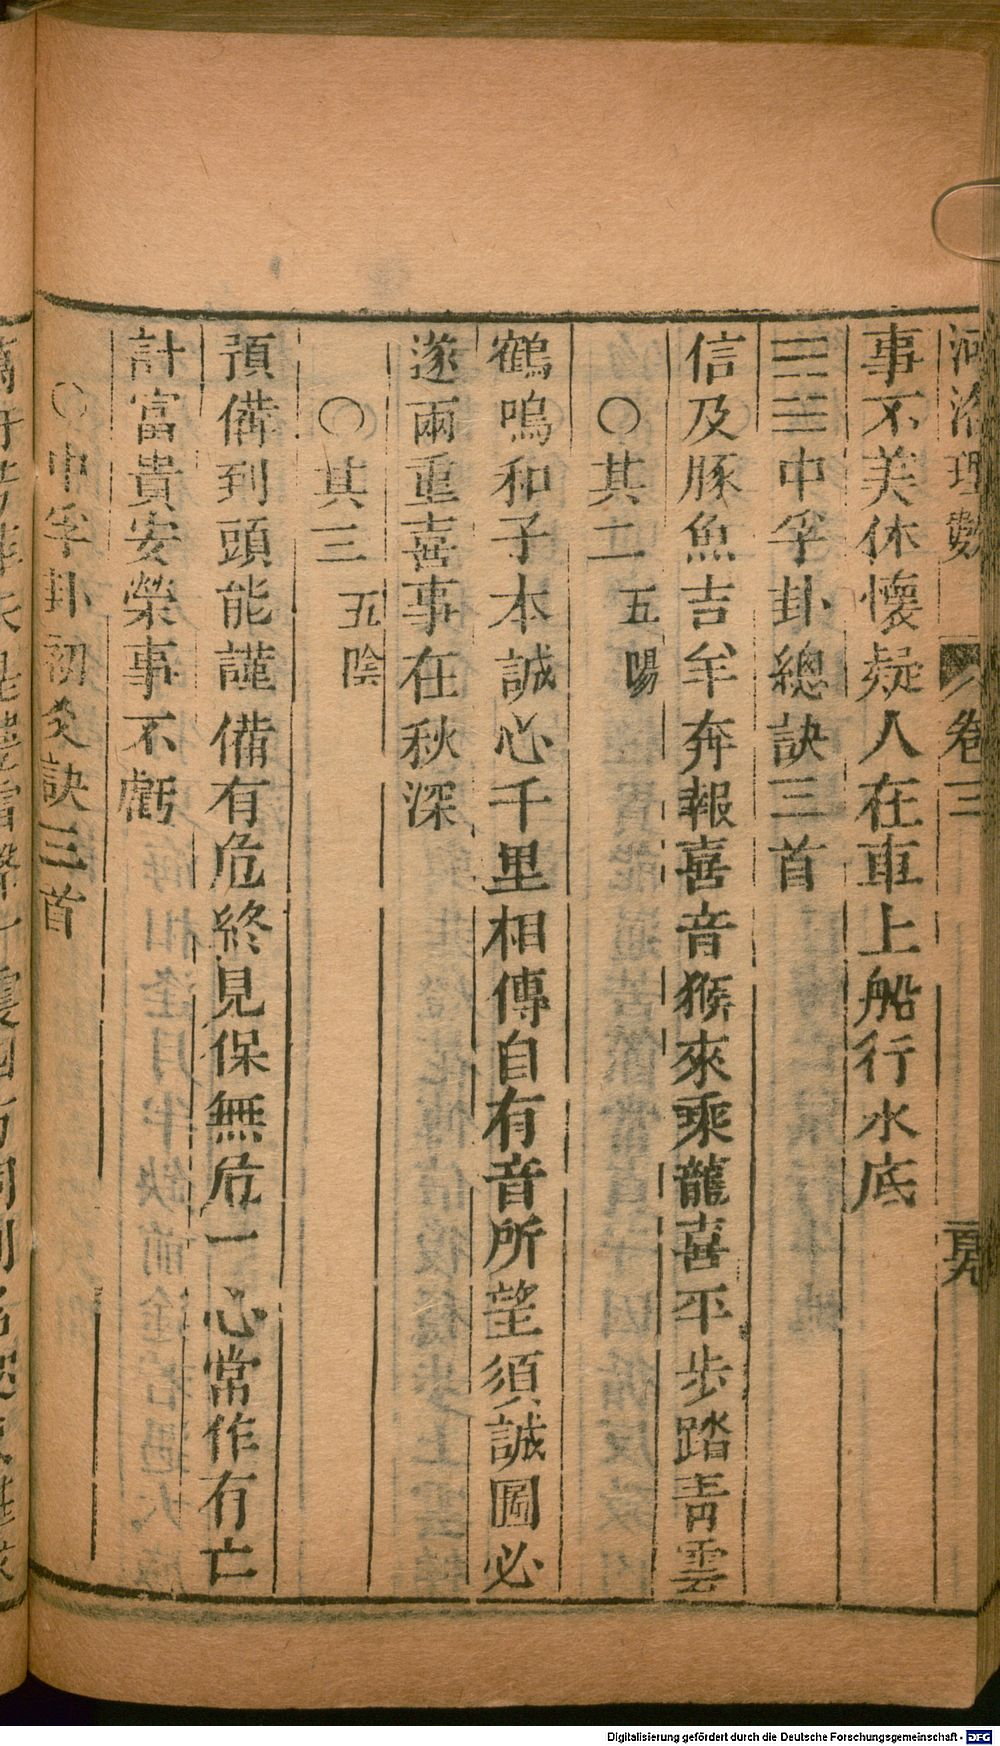 河洛理數 卷三
事不美休懷疑人在車上船行水底
中孚卦總訣三首
信及豚魚吉羊奔報喜音猴來乘龍喜平步踏青雲
○其二 五陽
鶴鳴和子本誠心千里相傳自有音所望須誠圖必
遂兩重喜事在秋深
○其三 五陰
預偹到頭能謹備有危終見保無危一心常作有亡
計富貴安榮事不虧
○中孚卦初爻訣三首
Digitalisierung gefördert durch die Deutsche Forschungsgemeinschaft - DFG